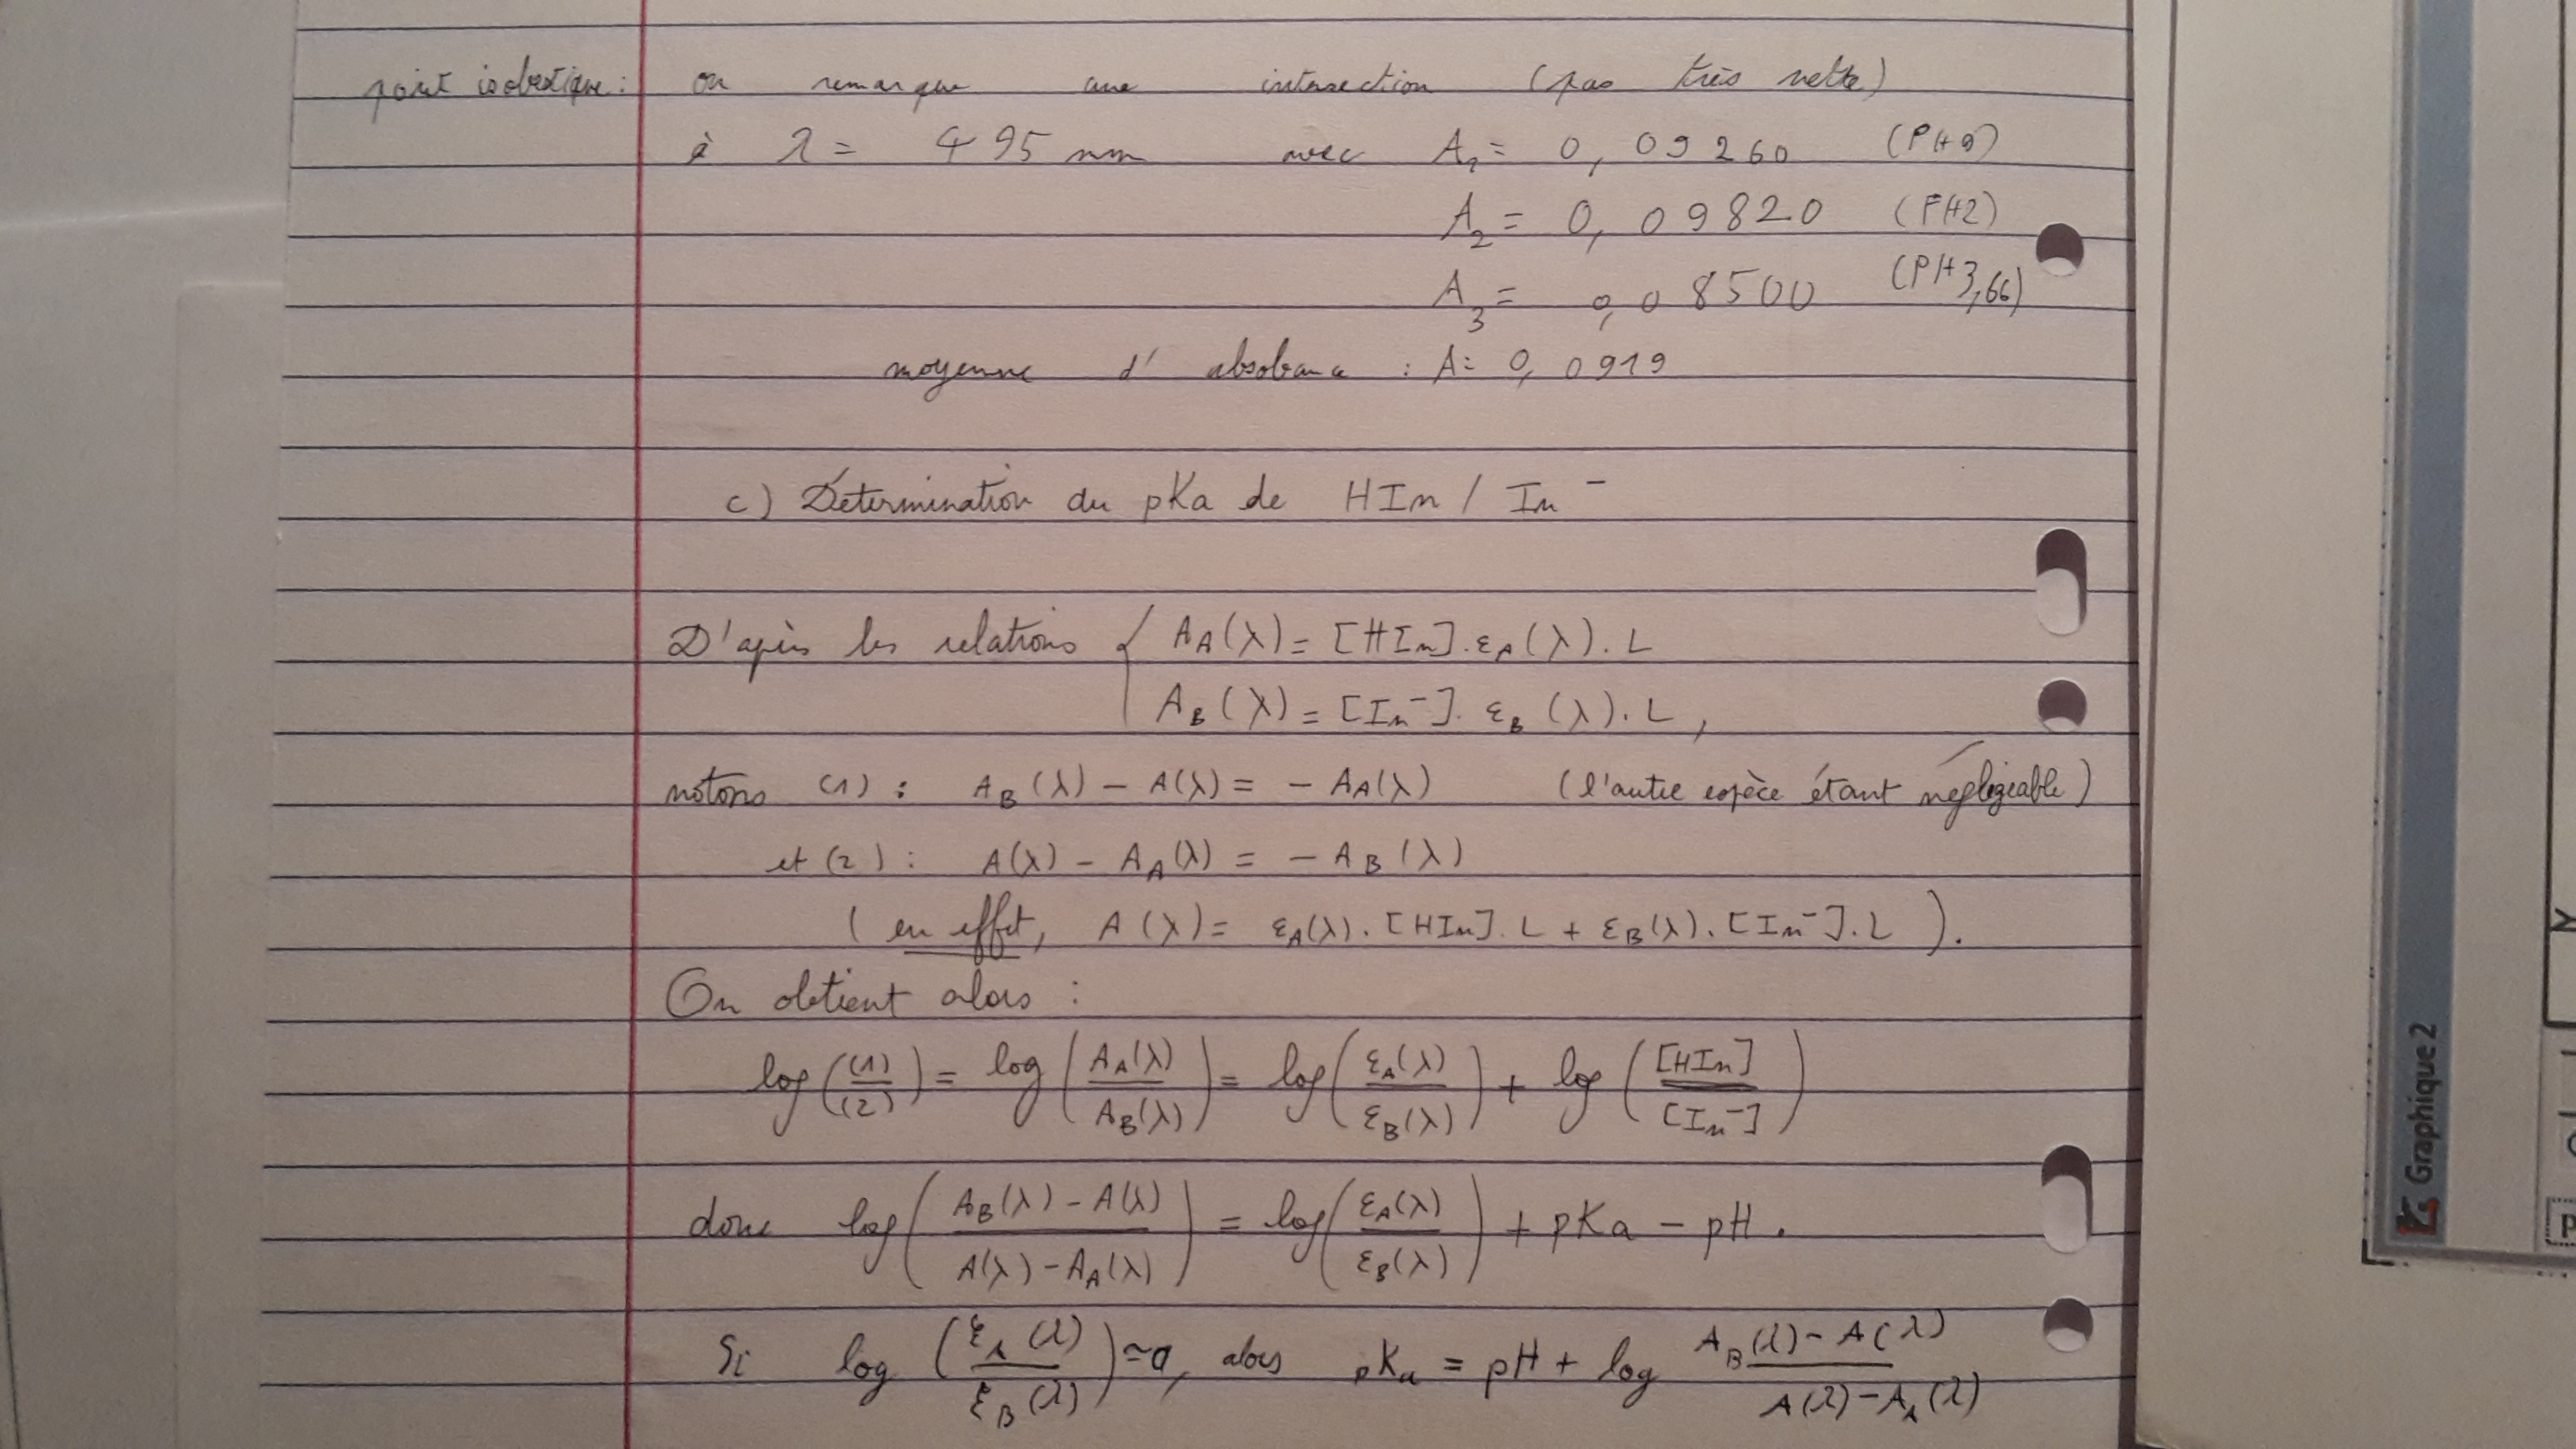 point isobestique : on remarque une intersection (pas très nette)
à λ = 495 nm avec A₁ = 0,09260 (PH9)
A₂ = 0,09820 (PH2)
A₃ = 0,08500 (PH3,66)
moyenne d'absobance : A = 0,0919
c) Détermination du pKa de HIn / In⁻
D'après les relations { A_A(λ) = [HIn].ε_A(λ).L
A_B(λ) = [In⁻].ε_B(λ).L,
notons (1) : A_B(λ) - A(λ) = - A_A(λ) (l'autre espèce étant négligeable)
et (2) : A(λ) - A_A(λ) = - A_B(λ)
(en effet, A(λ) = ε_A(λ).[HIn].L + ε_B(λ).[In⁻].L).
On obtient alors :
log((1)/(2)) = log(A_A(λ)/A_B(λ)) = log(ε_A(λ)/ε_B(λ)) + log([HIn]/[In⁻])
donc log((A_B(λ) - A(λ))/(A(λ) - A_A(λ))) = log(ε_A(λ)/ε_B(λ)) + pKa - pH.
Si log(ε_A(λ)/ε_B(λ)) ≃ 0, alors pKa = pH + log (A_B(λ) - A(λ))/(A(λ) - A_A(λ))
Graphique 2